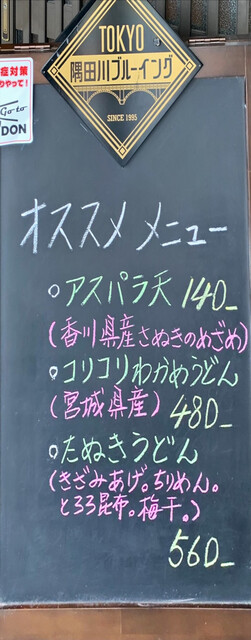 TOKYO
隅田川ブルーイング
SINCE 1995
症対策
りやって！
Go to
DON
オススメメニュー
○アスパラ天 140_
(香川県産さぬきのめざめ)
○コリコリわかめうどん
(宮城県産) 480_
○たぬきうどん
(きざみあげ。ちりめん。
とろろ昆布。梅干。)
560_